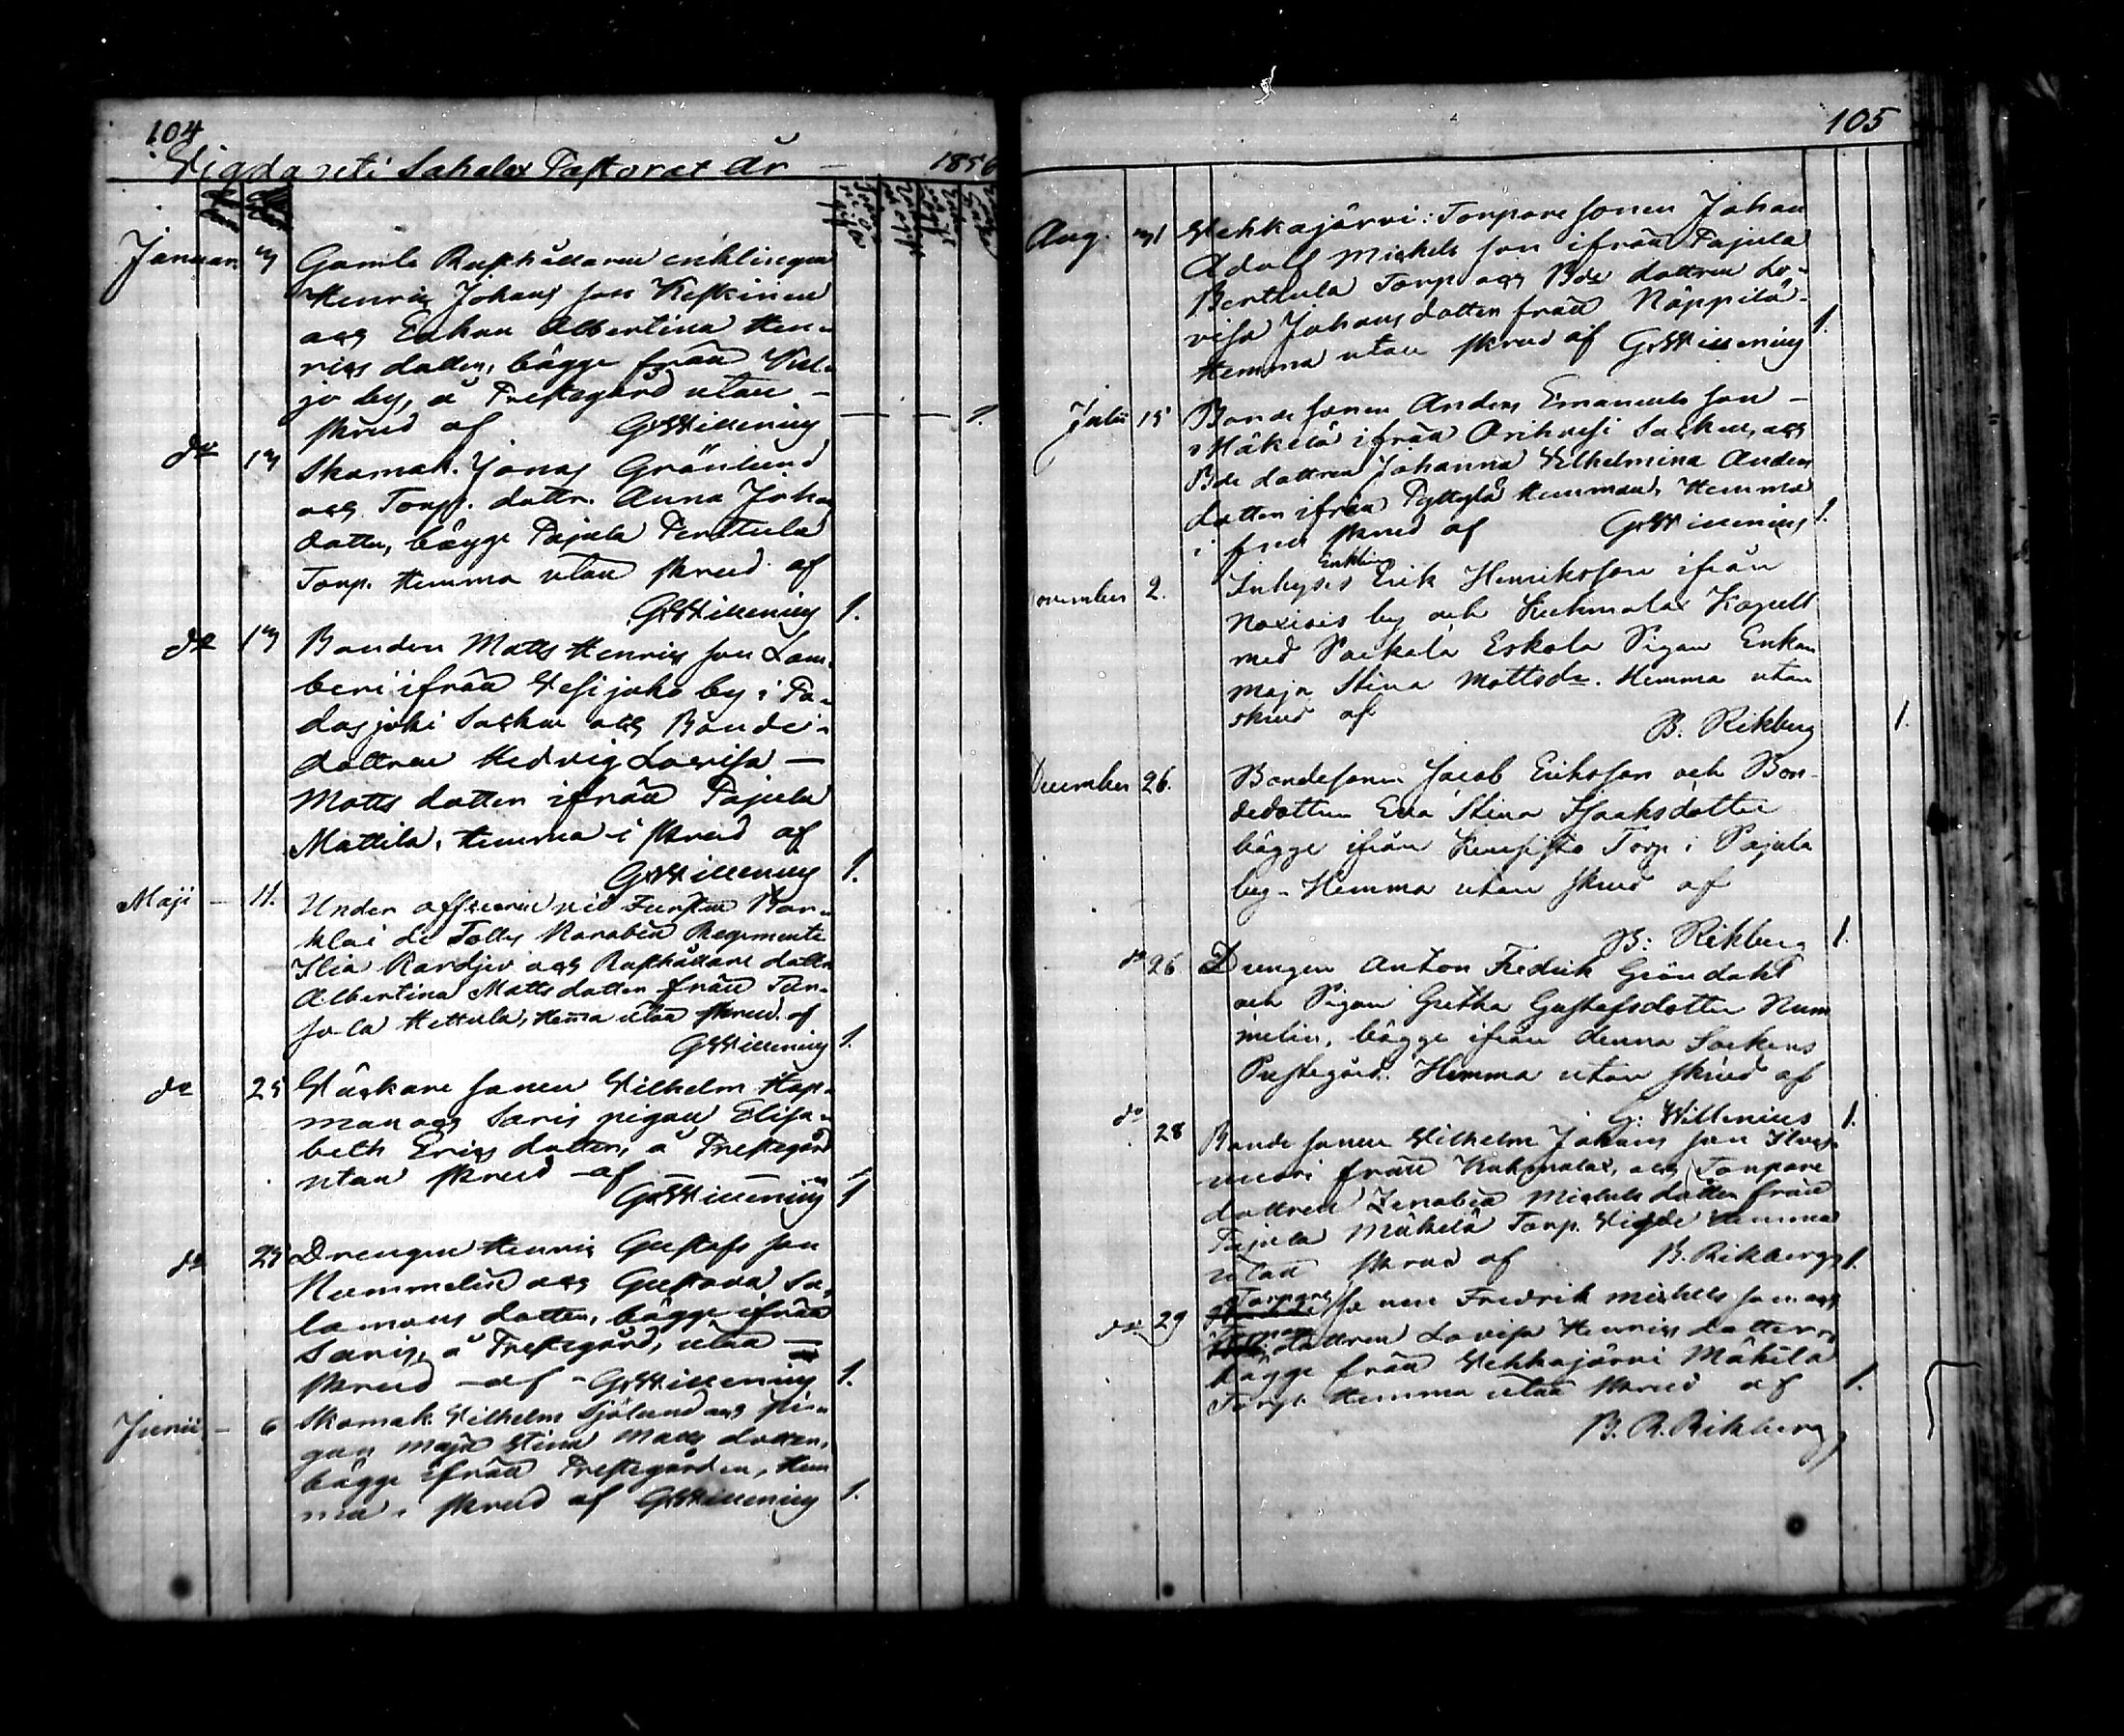 104
Vigda uti Sahalax Pastorat År — 1856
Januar. 3 Gamla Rusthållaren enklingen
Henric Johans son Keskinen
och Enkan Albertina Hen-
rics dotter, bägge från
jo by, å Prestegård utan —
skrud af G. Willenius — — 1.
do 13 Skomak. Jonas Grönlund
och Torp. dottr. Anna Johans
dotter, bägge Pajula Perttula
Torp. Hemma utan skrud af
G. Willenius 1.
do 13 Bonden Matts Henrics son Lam-
beri ifrån Vesijako by i Pa-
dasjoki Socken och Bonde-
dottren Hedvig Lovisa —
Matts dotter ifrån Pajula
Mattila, Hemma i skrud af
G. Willenius 1.
Maji — 11. Under officeren vid Fursten Bar-
klai de Tollys Karabin Regemente
Ilia Kardjev och Rusthållare dottr.
Albertina Matts dotter från
Hettula, Hemma utan skrud af
G. Willenius 1.
do 25 Väckare sonen Vilhelm Hap-
man och Saris pigan Elisa-
beth Erics dotter, å Prestegård
utan skrud — af —
G. Willenius 1
do 25 Drengen Henric Gustafs son
Nummelin och Gustava Sa-
lomons dotter, bägge ifrån
Saris, å Prestegård, utan —
skrud — af — G. Willenius 1.
Junii — 6 Skomak. Vilhelm Sjölund och Pi-
gan Maja Stina Matts dotter,
bägge ifrån Prestegården, Hem
ma i skrud af G. Willenius 1.
105
Aug. 31 Vehkajärvi: Torpare sonen Johan
Adolf Michels son ifrån Pajula
Perttula Torp och Bde dottren Lo-
visa Johans dotter från Näppilä-
Hemma utan skrud af G. Willenius 1.
Julii 15 Bonde sonen Anders Emanuels son —
Mäkelä ifrån Orihvesi Socken, och
Bde dottren Johanna Vilhelmina Anders
dotter ifrån Hemman, Hemma
i skrud af G. Willenius 1.
November 2. Inhyses Enkling Erik Henriksson ifrån
by och Kuhmalax Kapell
med Eskola Pigan Enkan
Maja Stina Mattsdr. Hemma utan
skrud af
B. Rikberg 1.
December 26. Bondesonen Jacob Eriksson och Bon-
dedottren Eva Stina Isaksdotter
bägge ifrån Torp i Pajula
by — Hemma utan skrud af
B: Rikberg 1.
do 26 Drengen Anton Fredrik Gröndahl
och Pigan Gretha Gustafsdotter Num
melin, bägge ifrån denna Sockens
Prestegård. Hemma utan skrud af
G. Willenius 1.
do 28 Bonde sonen Vilhelm Johans son
från Kuhmalax, och Torpare
dottren Zenobia Michels dotter från
Pajula Mäkelä Torp. Vigde Hemma
utan skrud af B. Rikberg 1.
do 29 Torpare sonen Fredrik Michels son och
dottren Lovisa Henrics dotter,
bägge från Vehkajärvi Mäkilä
Torp. Hemma utan skrud af 1.
B. R. Rikberg